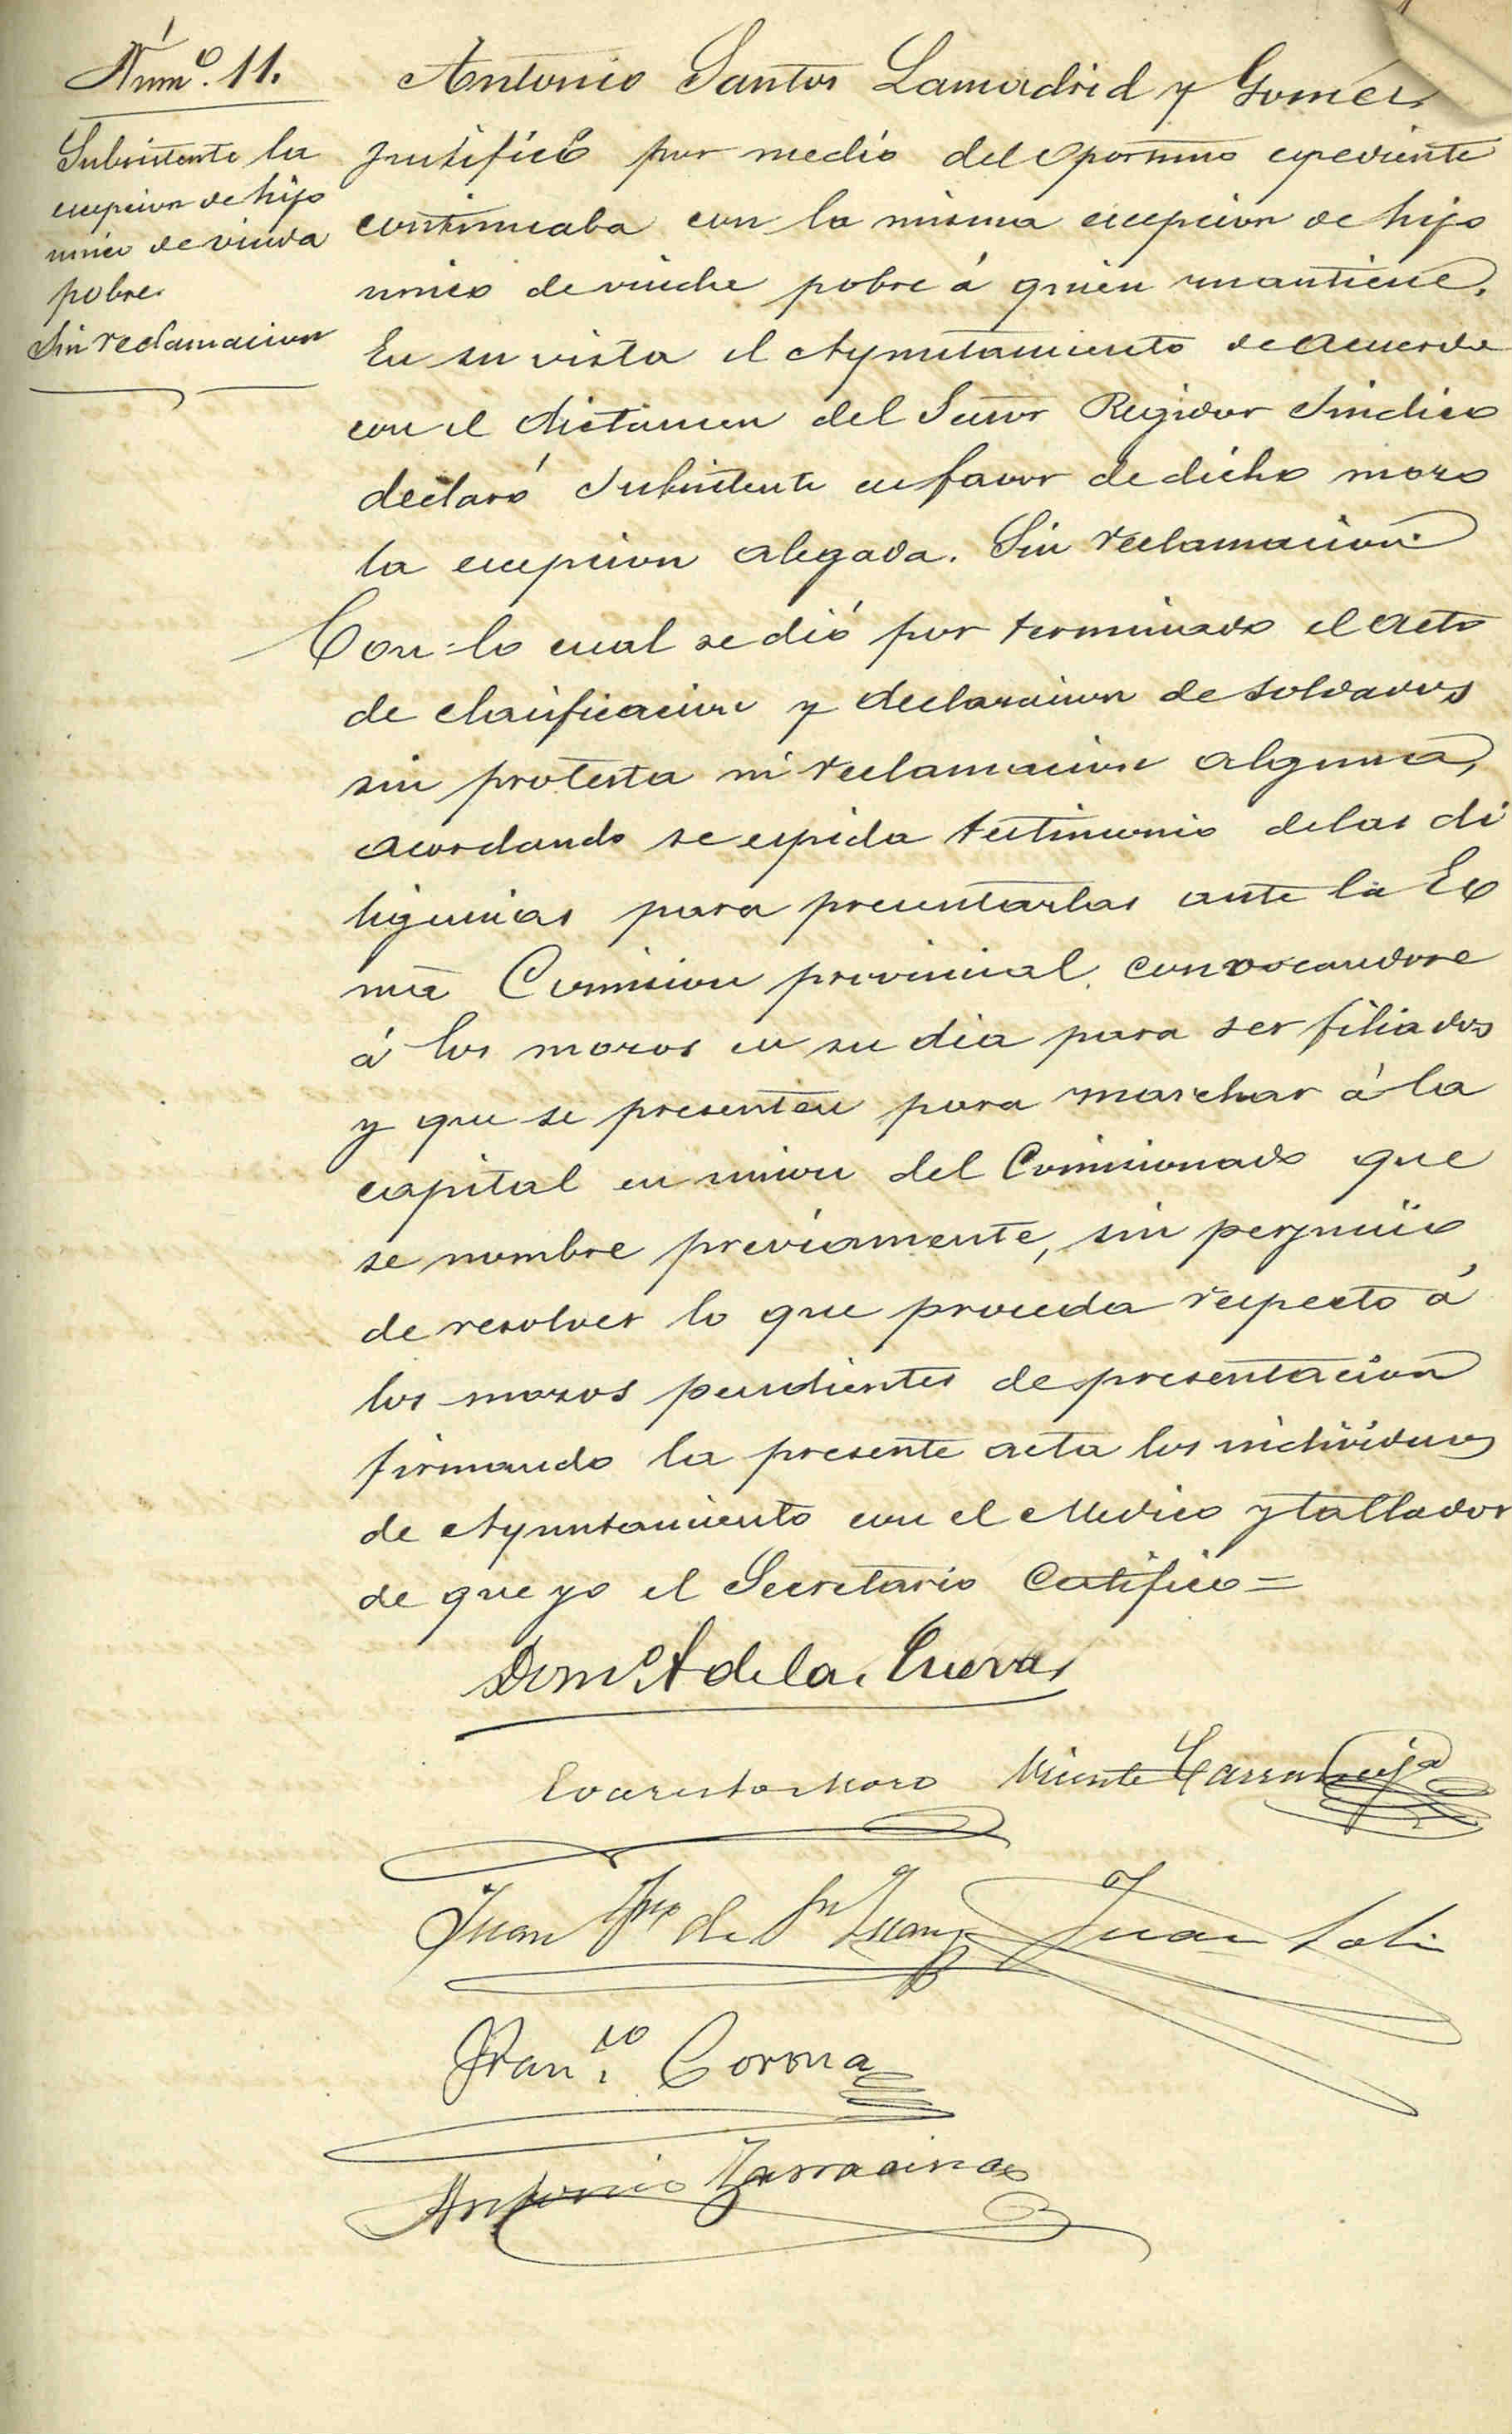 Núm.º 11.
Subsistente la
escepcion de hijo
unico de viuda
pobre.
Sin reclamacion
Antonio Santos Lamadrid y Gomez
justificó por medio del oportuno espediente
continuaba con la misma escepcion de hijo
unico de viuda pobre á quien mantiene.
En su vista el Ayuntamiento de acuerdo
con el dictamen del Señor Regidor Sindico
declaró subsistente en favor de dicho mozo
la escepcion alegada. Sin reclamacion.
Con lo cual se dió por terminado el acto
de clasificacion y declaracion de soldados
sin protesta ni reclamacion alguna,
acordando se espida testimonio de las di
ligencias para presentarlas ante la Ex
ma Comision provincial, convocandose
á los mozos en su dia para ser filiados
y que se presenten para marchar á la
capital en union del Comisionado que
se nombre previamente, sin perjuicio
de resolver lo que proceda respecto á
los mozos pendientes de presentacion
firmando la presente acta los individuos
de Ayuntamiento con el Medico y tallador
de que yo el Secretario Certifico=
Dom.º A de la Cueva
Evaristo Moro Vicente Carranceja
Juan de Sn Juan Juan
Fran.co Corona
Antonio Zarracina